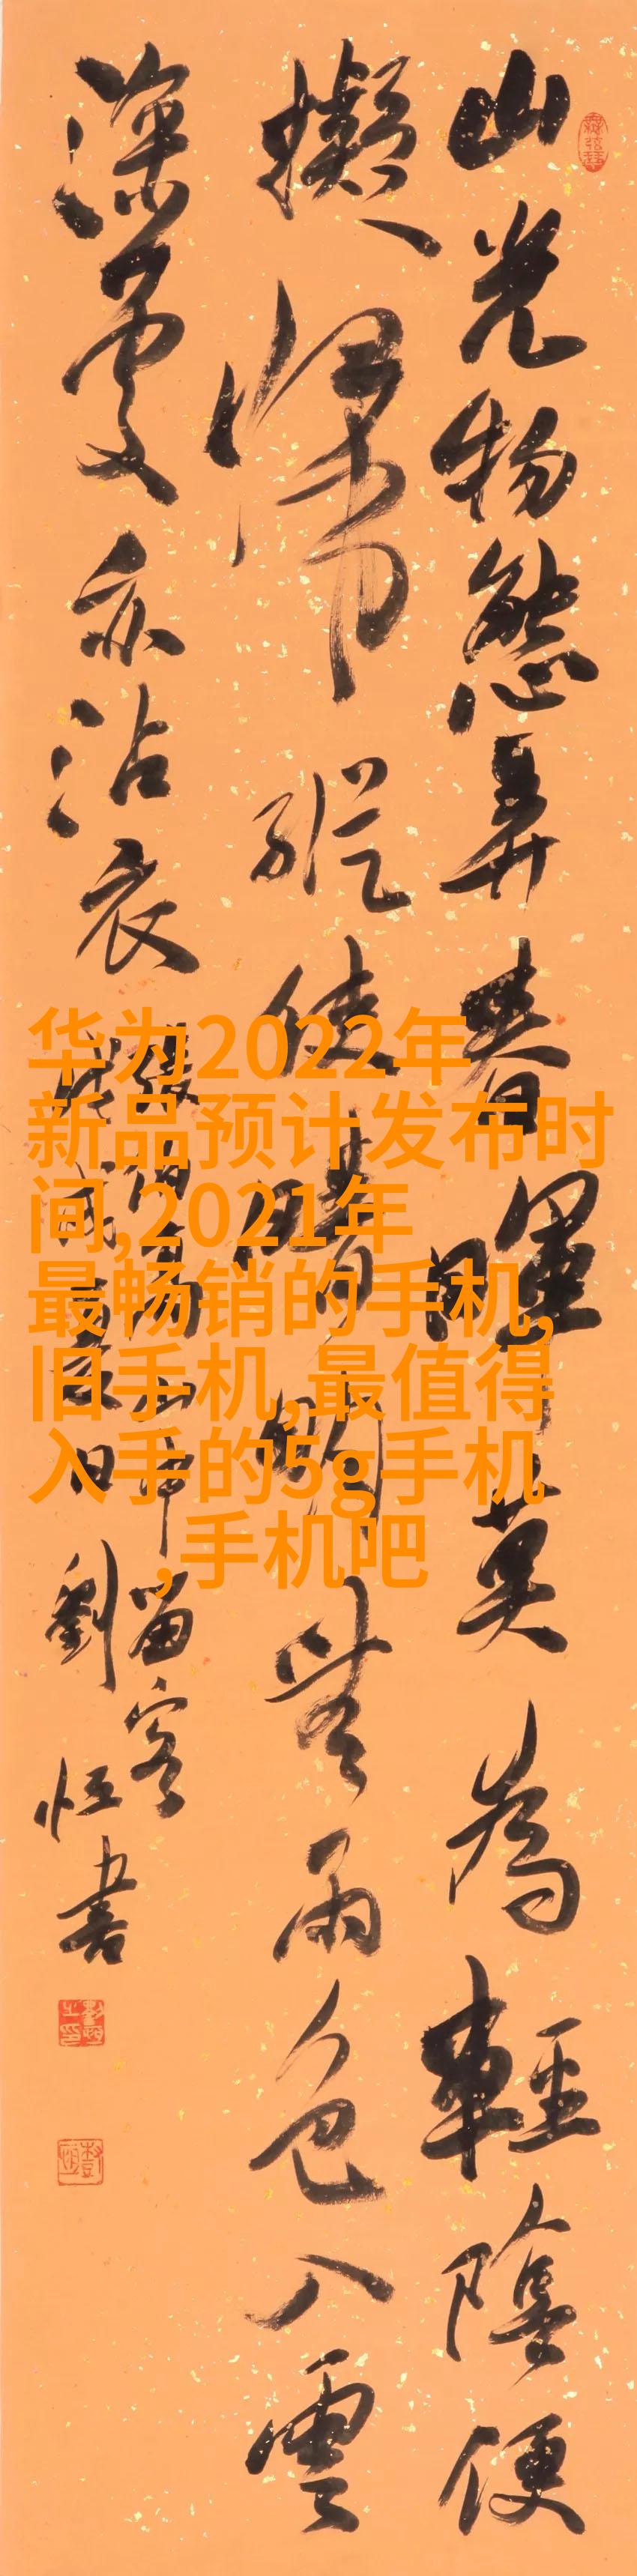 山光物態弄春暉莫為輕陰便
擬歸縱使晴明無雨色入雲
深處亦沾衣
張伯高山中留客
戊戌夏日劉恒書
华为2022年
新品预计发布时
间,2021年
最畅销的手机,
旧手机,最值得
入手的5g手机
,手机吧